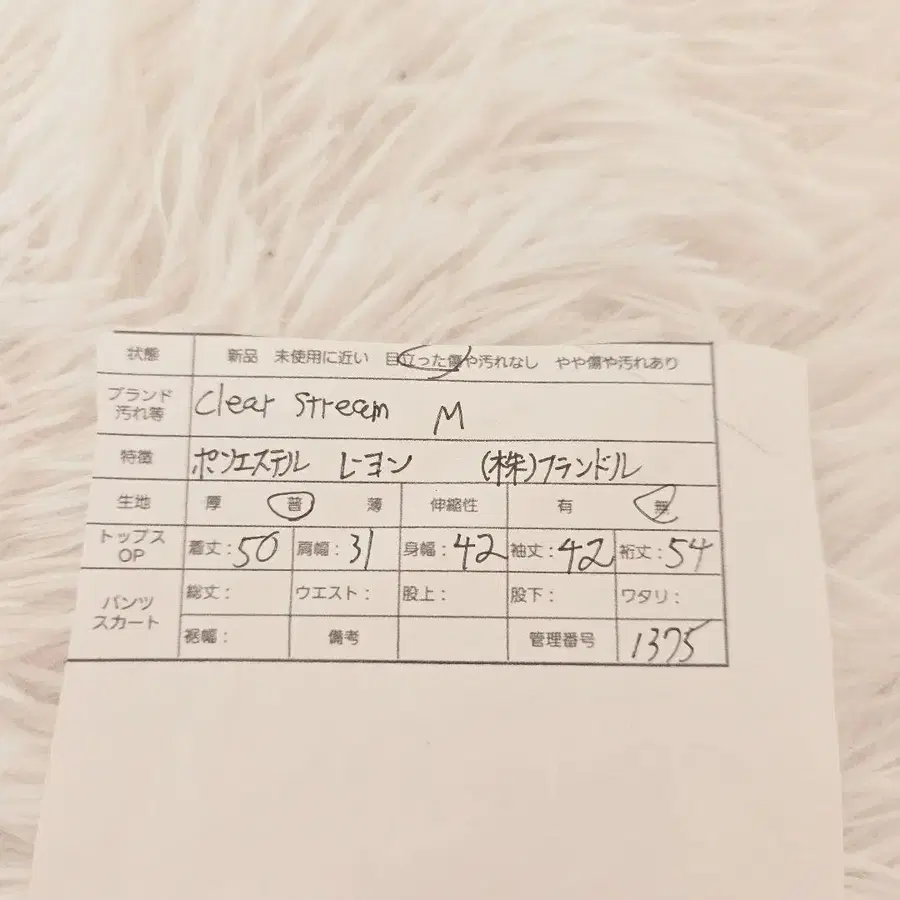 状態 新品 未使用に近い 目立った傷や汚れなし やや傷や汚れあり
ブランド 汚れ等 Clear Stream M
特徴 ポンエステル レーヨン (株)フランドル
生地 厚 普 薄 伸縮性 有 無
トップス OP 着丈:50 肩幅:31 身幅:42 袖丈:42 裄丈:54
パンツ スカート 総丈: ウエスト: 股上: 股下: ワタリ:
裾幅: 備考 管理番号 1375